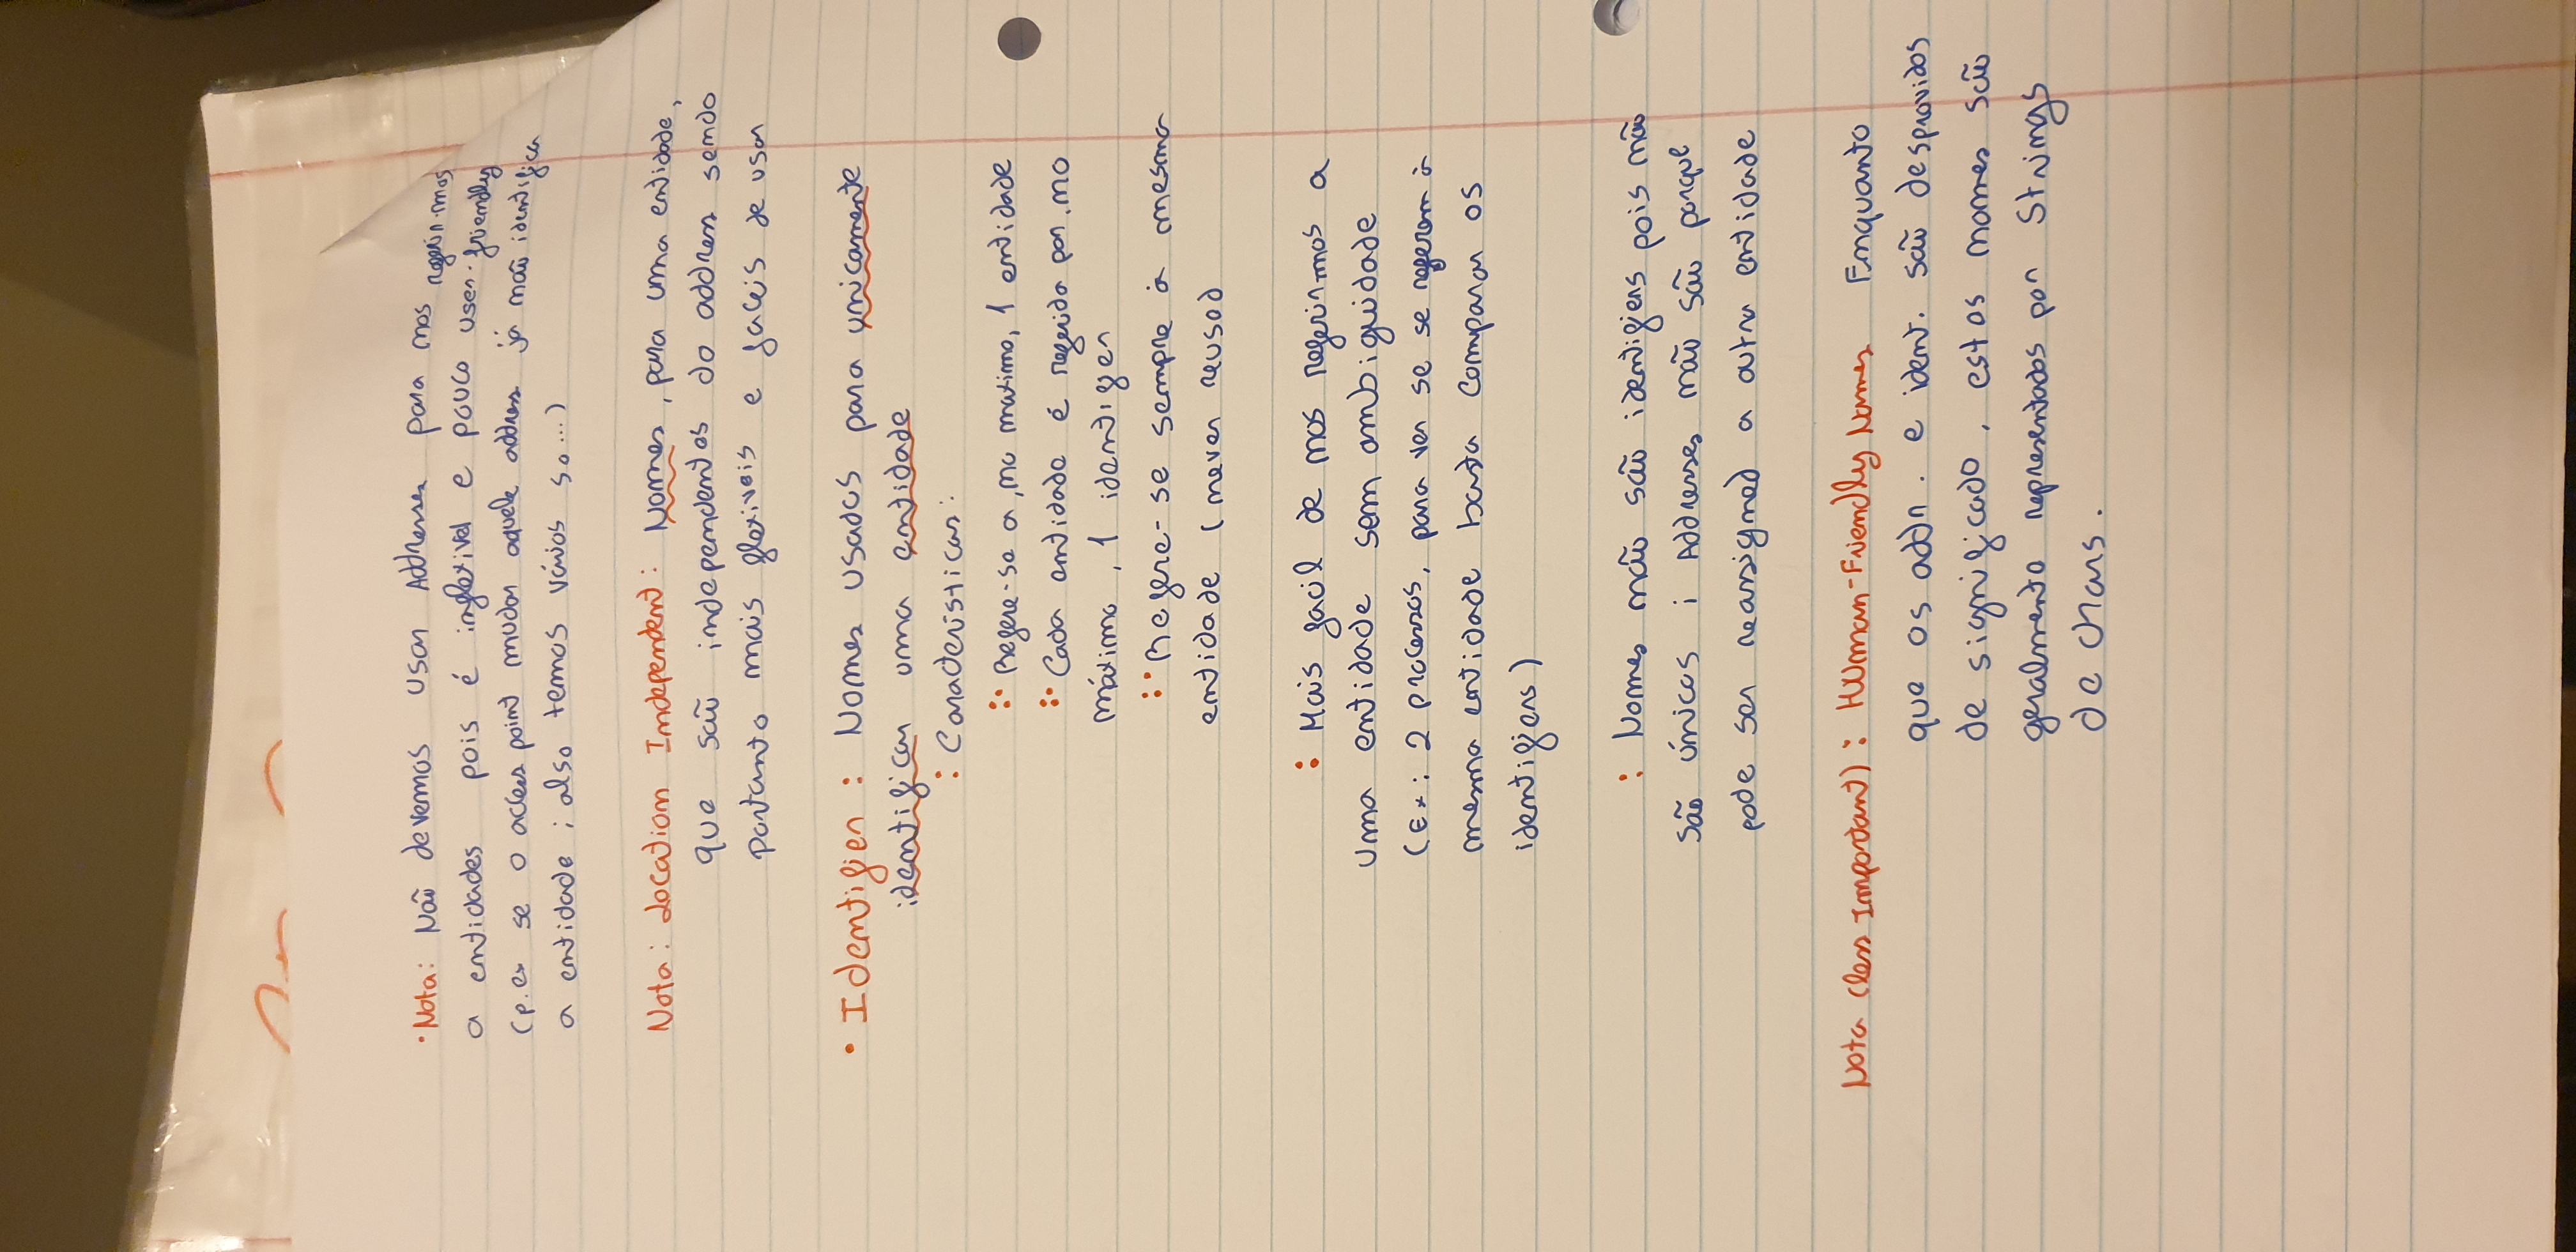 • Nota: Não devemos usar Addresses para nos referir-mos
a entidades pois é inflexivel e pouco user-friendly
(p.ex se o access point mudar aquele address já não identifica
a entidade ; also temos vários so...)
Nota: Location Independent: Nomes, para uma entidade,
que são independentes do address sendo
portanto mais flexiveis e faceis de usar
• Identifier : Nomes usados para unicamente
identificar uma entidade
: Características:
:· Refere-se a, no maximo, 1 entidade
:· Cada entidade é referida por, no
máximo, 1 identifier
:· Refere-se sempre à mesma
entidade (never reused
: Mais facil de nos referirmos a
uma entidade sem ambiguidade
(Ex: 2 processos, para ver se se referem à
mesma entidade basta comparar os
identifiers)
: Nomes não são identifiers pois não
são únicos ; Addresses não são porque
pode ser reassigned a outra entidade
Nota (less Important) : HUman-Friendly Names Enquanto
que os addr. e ident. são desprovidos
de significado, estes nomes são
geralmente representados por Strings
de chars.